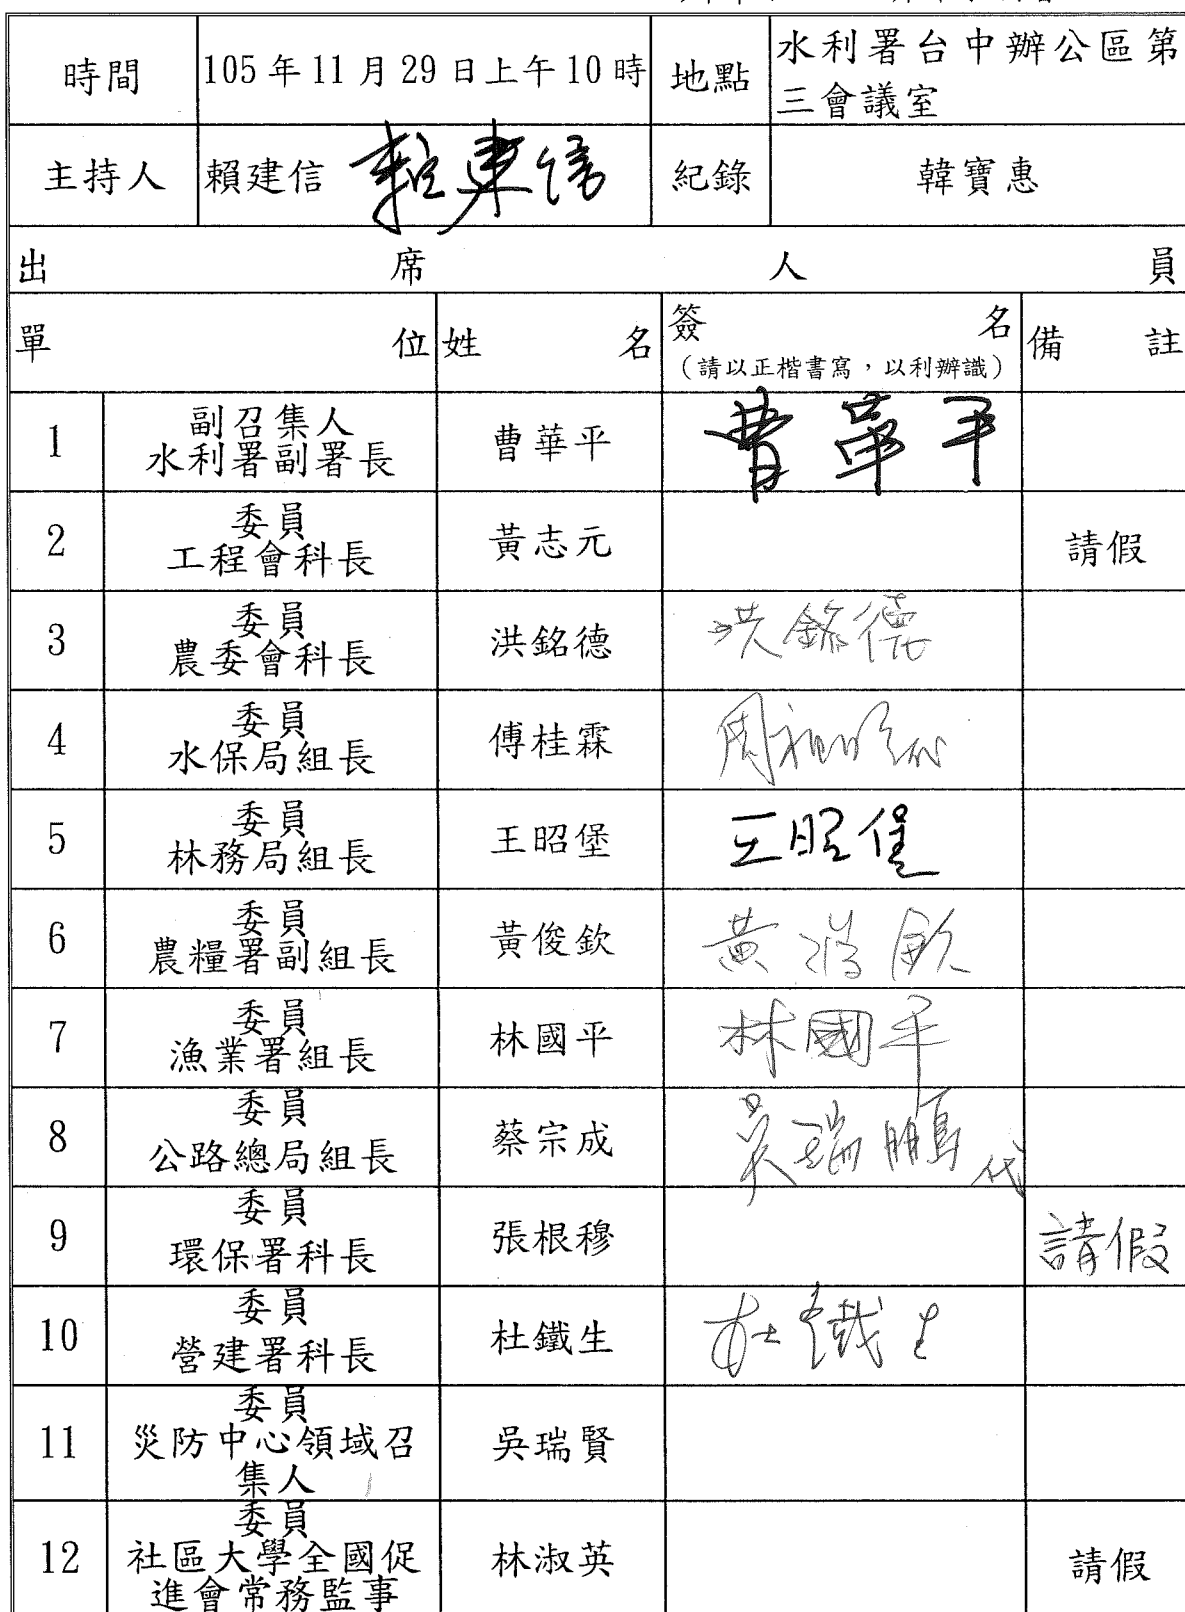 時間 105年11月29日上午10時 地點 水利署台中辦公區第
三會議室
主持人 賴建信 賴建信 紀錄 韓寶惠
出席人員
單位 姓名 簽名 備註
(請以正楷書寫,以利辨識)
1 副召集人
水利署副署長 曹華平 曹華平
2 委員
工程會科長 黃志元 請假
3 委員
農委會科長 洪銘德 洪銘德
4 委員
水保局組長 傅桂霖 周
5 委員
林務局組長 王昭堡 王昭堡
6 委員
農糧署副組長 黃俊欽 黃俊欽
7 委員
漁業署組長 林國平 林國平
8 委員
公路總局組長 蔡宗成 吳瑞鵬代
9 委員
環保署科長 張根穆 請假
10 委員
營建署科長 杜鐵生 杜鐵生
11 委員
災防中心領域召
集人 吳瑞賢
12 委員
社區大學全國促
進會常務監事 林淑英 請假